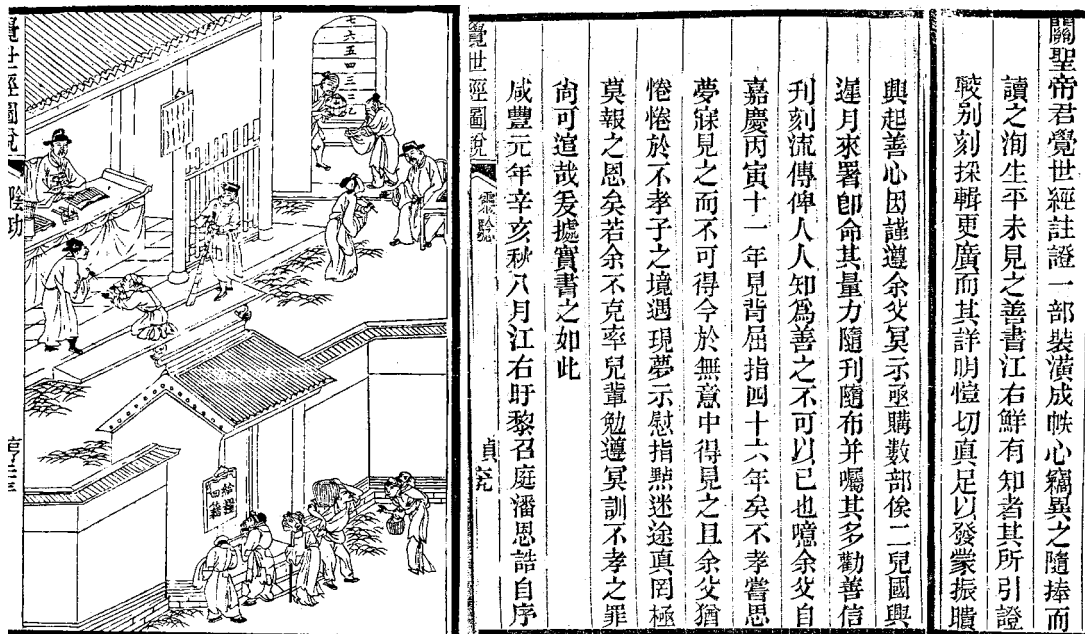 關聖帝君覺世經註證一部裝潢成帙心竊異之隨捧而
讀之洵生平未見之善書江右鮮有知者其所引證
較别刻採輯更廣而其詳明愷切真足以發蒙振聵
興起善心因謹遵余父冥示亟購數部俟二兒國興
遲月來署卽命其量力隨刊隨布并囑其多勸善信
刋刻流傳俾人人知爲善之不可以已也噫余父自
嘉慶丙寅十一年見背屈指四十六年矣不孝嘗思
夢寐見之而不可得今於無意中得見之且余父猶
惓惓於不孝子之境遇現夢示慰指點迷途真罔極
莫報之恩矣若余不克率兒輩勉遵冥訓不孝之罪
尙可逭哉爰據實書之如此
咸豐元年辛亥秋八月江右盱黎召庭潘恩誥自序
覺世經圖說
靈驗
貞
覺世經圖說
七
六
五
四
三
二
給糧
四籍